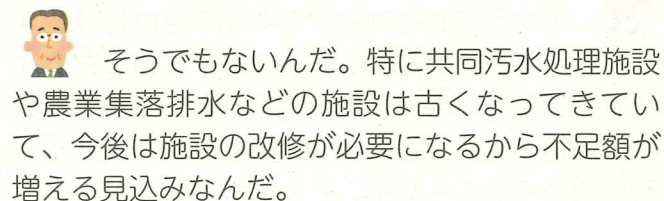 そうでもないんだ。特に共同汚水処理施設
や農業集落排水などの施設は古くなってきてい
て、今後は施設の改修が必要になるから不足額が
増える見込みなんだ。